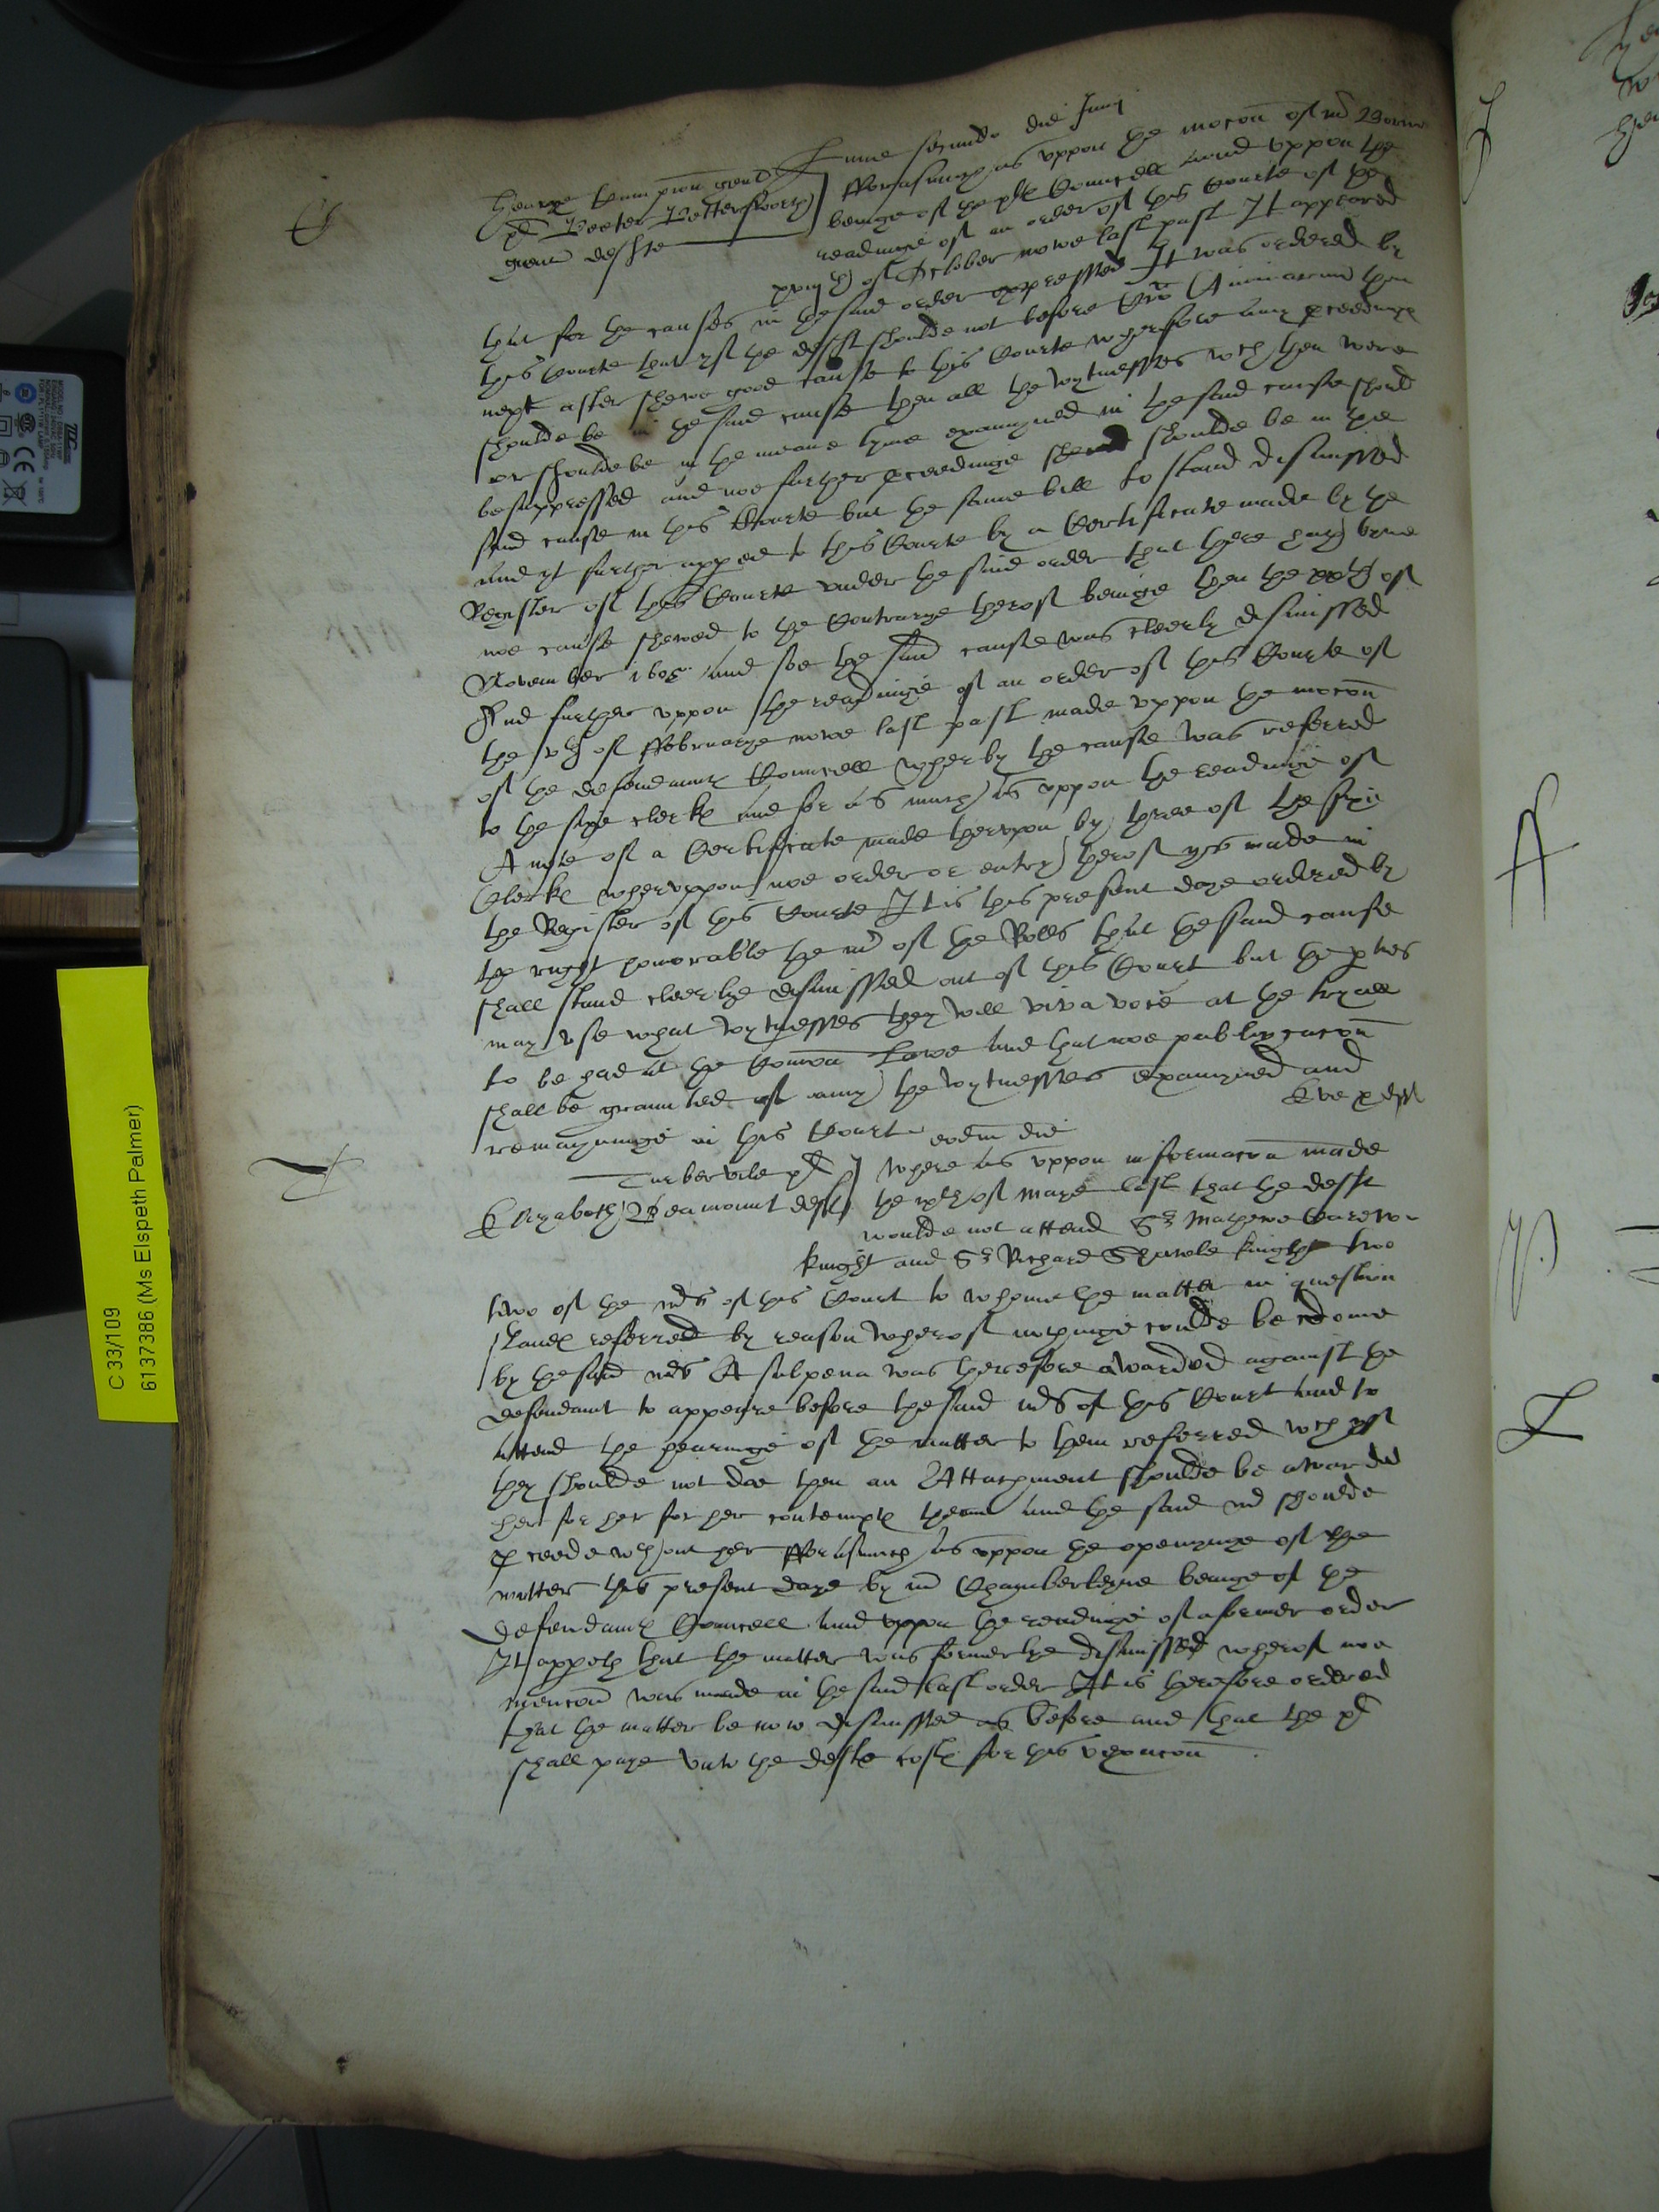 Lune secundo die Junij
George Campion gent
pl Peeter Pettersworth
gener defte
Forasmuch as uppon the mocon of mr
beinge of the plt Councell and uppon the
readinge of an order of this Courte of the
of October nowe last past It appeared
that for the causes in the said order expressed It was ordered by
this Courte that yf the defft shoulde not before then
next after shewe good cause to this Courte wherfore any pceedinge
shoulde be in the said cause then all the wytnesses wch then were
or shoulde be in the meane tyme examyned in the said cause should
be suppressed and noe further pceedinge shoulde be in the
said cause in this Courte but the same bill to stand dismissed
and yt further appeed to this Courte by a Certificate made by the
Register of this Courte under the said order that there hath byne
noe cause shewed to the Contrarye therof beinge then the xxth of
November 1605 and soe the said cause was cleerly dismissed
And further uppon the readinge of an order of this Courte of
the vth of Februarye nowe last past made uppon the mocon
of the defendaunts Councell wherby the cause was referred
to the sixe clerks and for as much as uppon the readinge of
A note of a Certificate made therupon by three of the sixe
Clerks wheruppon noe order or entry therof ys made in
the Register of this Courte It is this present daye ordered by
the right honorable the mr of the Rolls that the said cause
shall stand cleerlye dismissed out of this Court but the pties
may use what wytnesses they will viva voce at the tryall
to be had at the Comon Lawe and that noe publicacon
shall be graunted of any the wytnesses examyned and
remayninge in this Court
Ex p deff
eodm die
Turbervile pl
Elizabeth Beamount deft
Where as uppon informacon made
the xth of Maye last that the defft
woulde not attend Sr Mathewe Carew
knight and Sr Richard Swale knight two
two of the mrs of this Court to whome the matter in question
stands referred by reason wherof nothinge coulde be doone
by the said mrs A subpena was therefore awarded against the
defendant to appeare before the said mrs of this Court and to
attend the hearinge of the matter to them referred wch yf
they shoulde not doe then an Attachment shoulde be awarded
her for her for her contempt and the said mrs shoulde
pceede wthout her Forasmuch as uppon the openynge of the
matter this present daye by mr Chamberleyne beinge of the
defendaunts Councell and uppon the readinge of a former order
It appeth that the matter was formerlye dismissed wherof noe
mencon was made in the said last order It is therefore ordered
that the matter be now dismissed as before and that the pl
shall paye unto the defte costs for his vexacon
C 33/109
6137386 (Ms Elspeth Palmer)